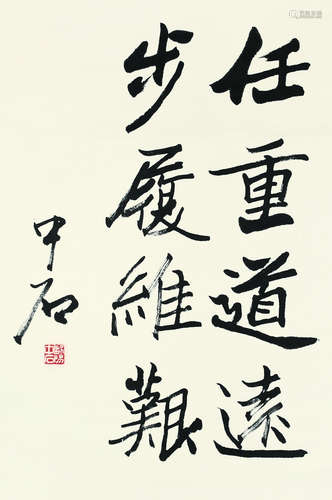 任重道遠
步履維艱
中石